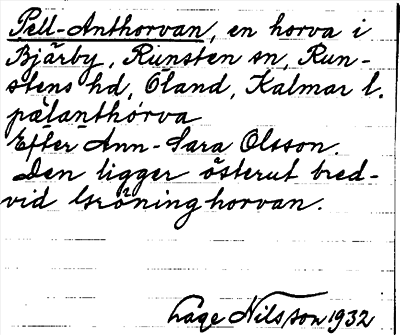 Pell-Anthorvan, en horva i
Bjärby, Runsten sn, Run-
stens hd, Öland, Kalmar l.
pælanthórva
Efter Ann-Sara Olsson.
Den ligger österut bred-
vid Gröninghorvan.
Lage Nilsson 1932